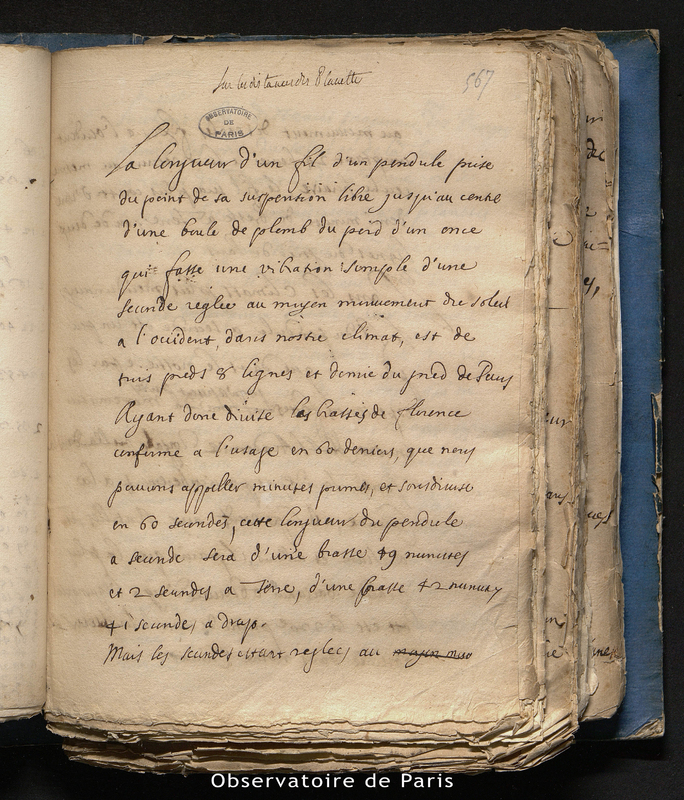 Sur les distances des Planette
567
OBSERVATOIRE
DE
PARIS
La longueur d'un fil d'un pendule prise
du point de sa suspention libre jusqu'au centre
d'une boule de plomb du poid d'un once
qui fasse une vibration simple d'une
seconde reglee au moyen mouvement du soleil
a l'occident, dans nostre climat, est de
trois pieds 8 lignes et demie du pied de Paris
Ayant donc divisé la brasse de Florence
conforme a l'usage en 60 deniers, que nous
pouvons appeller minutes primes, et sousdivise
en 60 secondes, cette longueur du pendule
a seconde sera d'une brasse 49 minutes
et 2 secondes a Terre, d'une brasse 42 minutes
41 secondes a drap.
Mais les secondes estant reglees au moyen mou
Observatoire de Paris